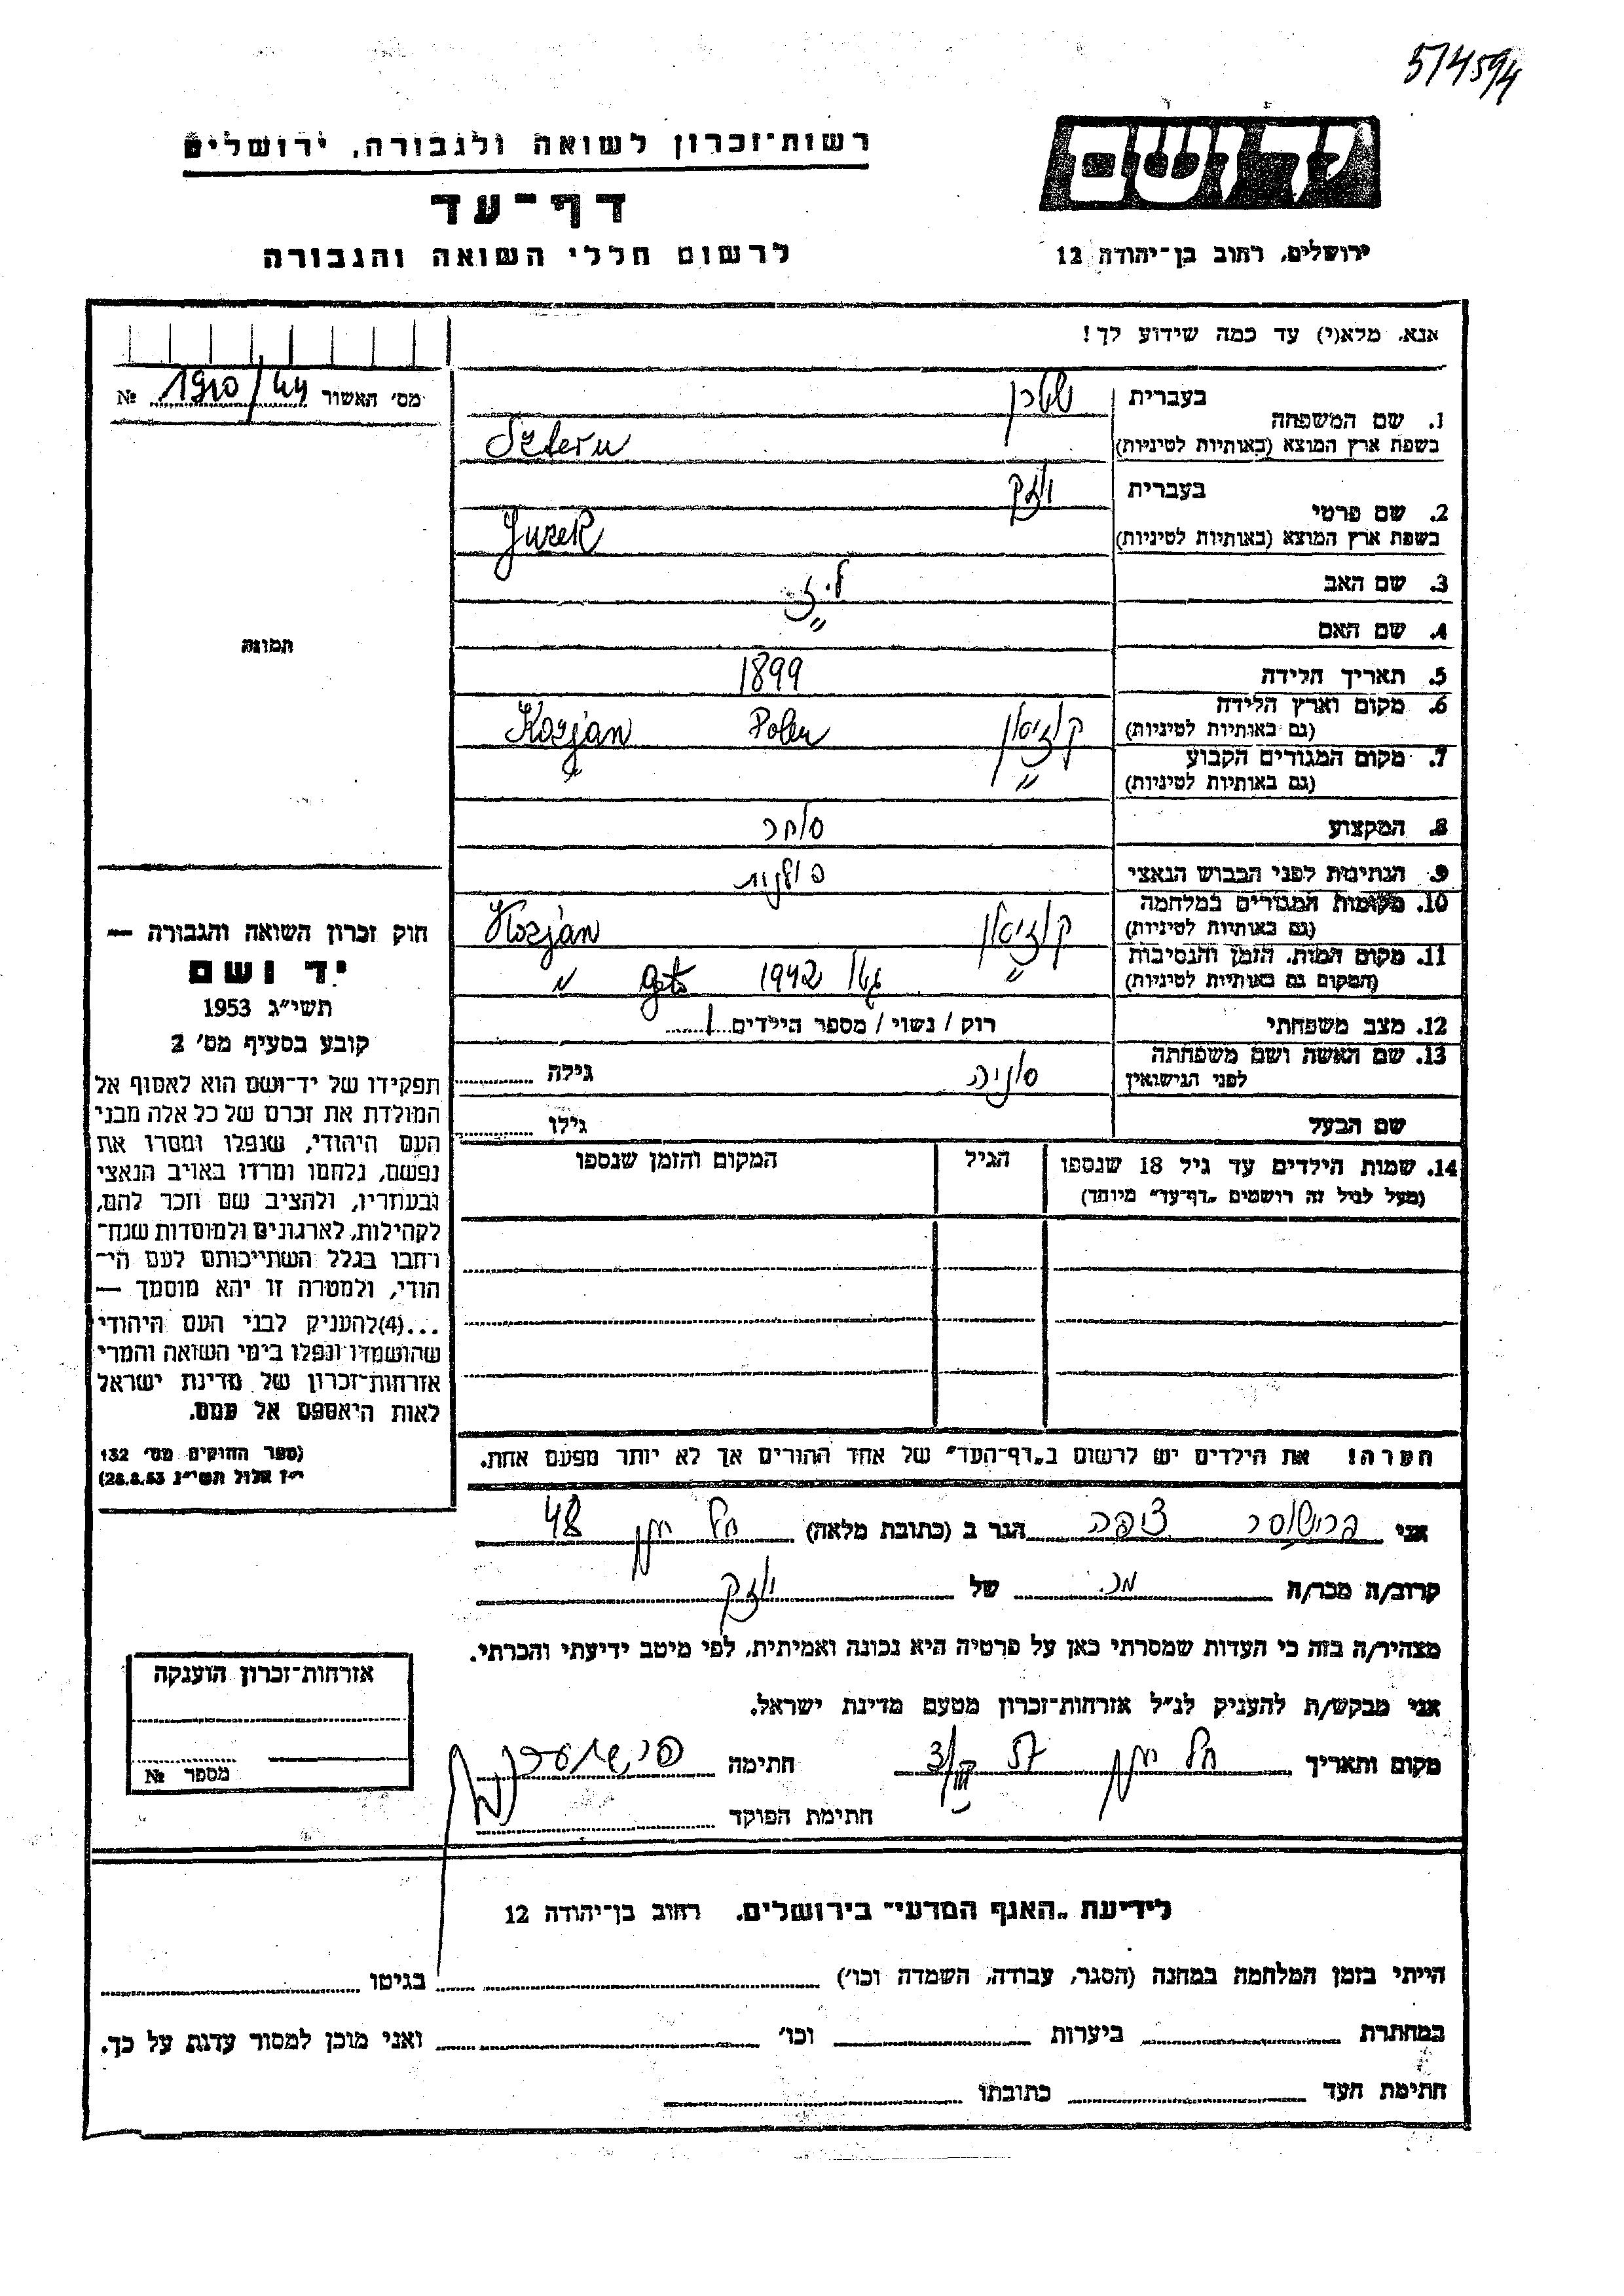 514594
יד ושם
רשות־זכרון לשואה ולגבורה, ירושלים
דף־עד
לרשום חללי השואה והגבורה
ירושלים, רחוב בן־יהודה 12
אנא, מלא(י) עד כמה שידוע לך!
מס' האשור 1910/44 №
1. שם המשפחה
בעברית שטרן
בשפת ארץ המוצא (באותיות לטיניות) Sztern
2. שם פרטי
בעברית יוזק
בשפת ארץ המוצא (באותיות לטיניות) Juzek
3. שם האב
4. שם האם
תמונה
5. תאריך הלידה 1899
6. מקום וארץ הלידה
(גם באותיות לטיניות) קוזיאן Polen Kozjan
7. מקום המגורים הקבוע
(גם באותיות לטיניות) " "
8. המקצוע סוחר
9. הנתינות לפני הכבוש הנאצי פולנית
10. מקומות המגורים במלחמה
(גם באותיות לטיניות) קוזיאן Kozjan
11. מקום המות, הזמן והנסיבות
(המקום גם באותיות לטיניות) " גטו 1942 geto "
12. מצב משפחתי רוק / נשוי / מספר הילדים 1
13. שם האשה ושם משפחתה
לפני הנישואין סוניה גילה
שם הבעל גילו
14. שמות הילדים עד גיל 18 שנספו הגיל המקום והזמן שנספו
(מעל לגיל זה רושמים „דף־עד" מיוחד)
חוק זכרון השואה והגבורה —
יד ושם
תשי"ג 1953
קובע בסעיף מס' 2
תפקידו של יד־ושם הוא לאסוף אל
המולדת את זכרם של כל אלה מבני
העם היהודי, שנפלו ומסרו את
נפשם, נלחמו ומרדו באויב הנאצי
ובעוזריו, ולהציב שם וזכר להם,
לקהילות, לארגונים ולמוסדות שנח־
רחבו בגלל השתייכותם לעם הי־
הודי, ולמטרה זו יהא מוסמך —
...(4)להעניק לבני העם היהודי
שהושמדו ונפלו בימי השואה והמרי
אזרחות־זכרון של מדינת ישראל
לאות היאספם אל עמם.
(ספר החוקים מס' 132
י"ז אלול תשי"ג 28.8.53)
הערה! את הילדים יש לרשום ב„דף־העד" של אחד ההורים אך לא יותר מפעם אחת.
אני צופה הגר ב (כתובת מלאה) 48
קרוב/ה מכר/ה מכ. של יוזק
מצהיר/ה בזה כי העדות שמסרתי כאן על פרטיה היא נכונה ואמיתית, לפי מיטב ידיעתי והכרתי.
אני מבקש/ת להעניק לנ"ל אזרחות־זכרון מטעם מדינת ישראל.
מקום ותאריך חתימה
חתימת הפוקד
אזרחות־זכרון הוענקה
מספר №
לידיעת „האגף המדעי" בירושלים, רחוב בן־יהודה 12
הייתי בזמן המלחמה במחנה (הסגר, עבודה, השמדה וכו') בגיטו
במחתרת ביערות וכו' ואני מוכן למסור עדות על כך.
חתימת העד כתובתו